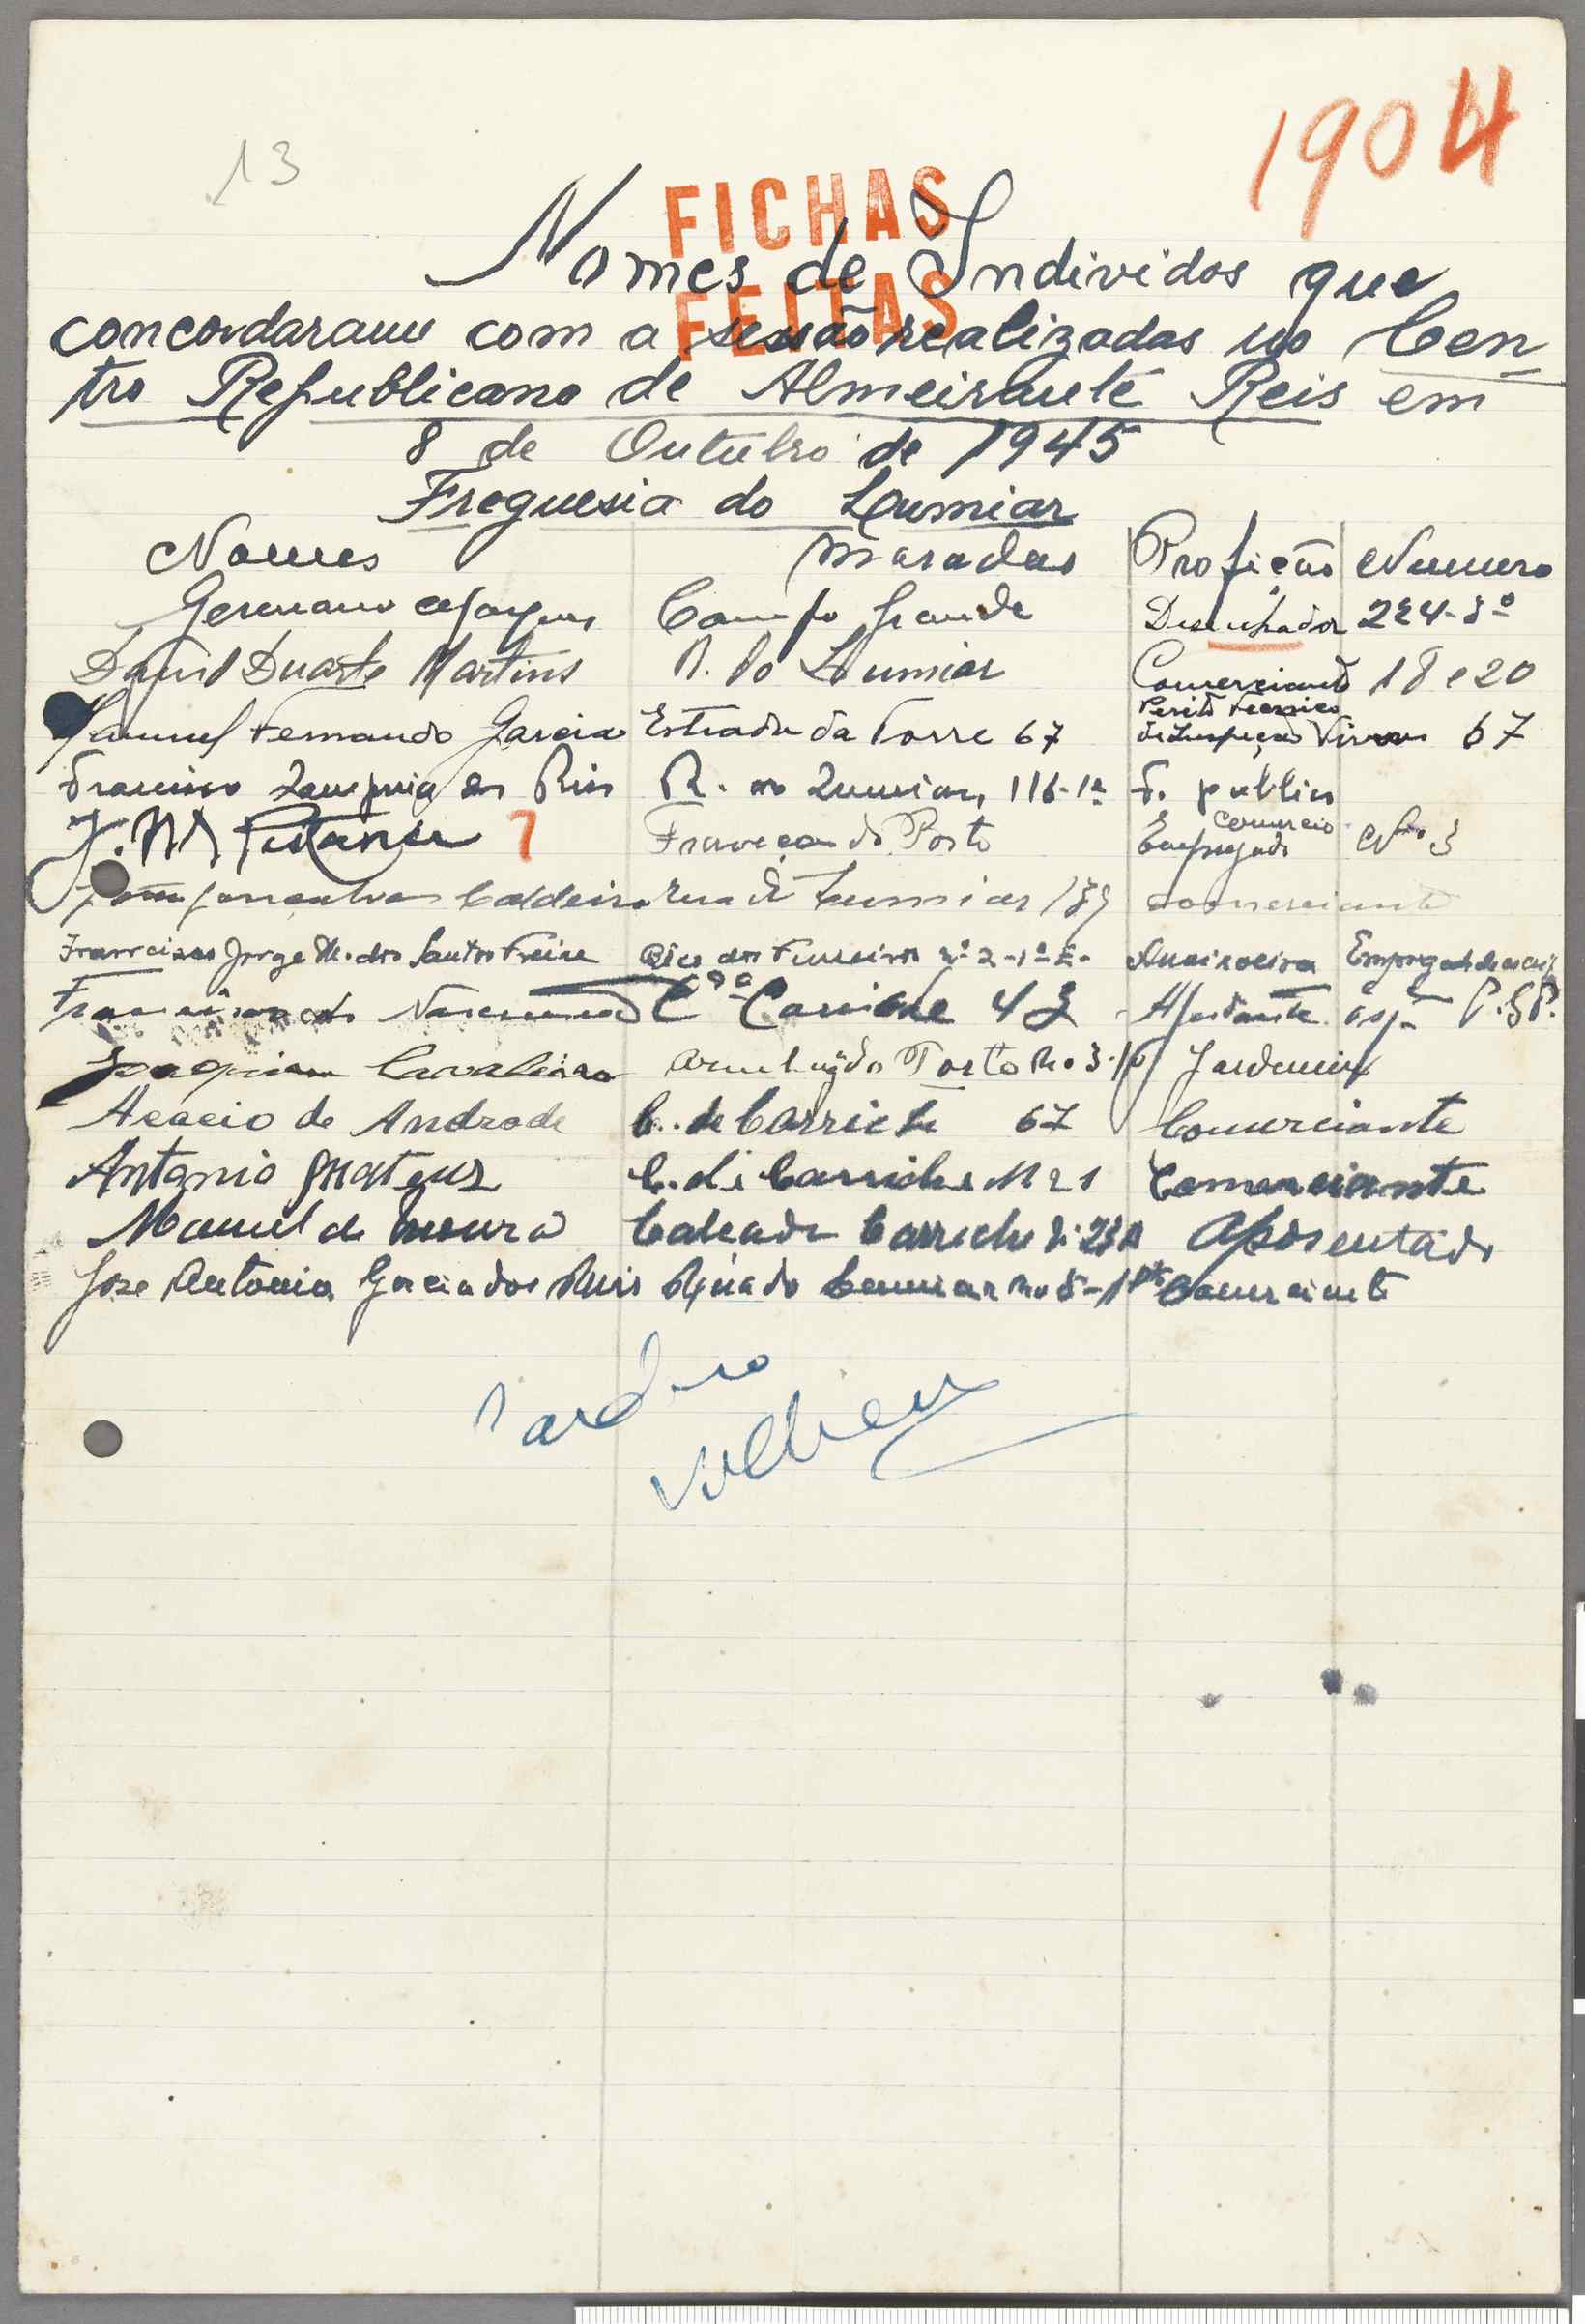 1904
13
FICHAS
FEITAS
Nomes de Individos que
concordaram com a sessão realizadas no Cen-
tro Republicano de Almeirante Reis em
8 de Outubro de 1945
Freguesia do Lumiar
Nomes Moradas Profição Numero
Germano Campo Grande Desenhador 224-3º
David Duarte Martins R. do Lumiar Comerciante 18 e 20
Manuel Fernando Garcia Estrada da Torre 67 Perito Tecnico de Inspeção 67
Francisco dos Reis R. do Lumiar, 116-1º F. publico
Pitanza 7 Traveça do Porto Empregado comercio Nº 3
Gonçalves Caldeira rua do Lumiar 189 comerciante
Francisco Jorge M. dos Santos Freire nº 2-1º E. Ameixoeira Empregado de
Francisco do Nascimento Cçª Carriche 43 Ajudante
Joaquim Cavaleiro do Porto No 3 Jardeneiro
Acacio de Andrade C. de Carriche 67 Comerciante
Antonio Mateus C. de Carriche Nº 21 Comerciante
Manuel de Moura Calcada Carriche 23A Aposentado
Jose Antonio Garcia dos Reis Rua do Lumiar No 5-1º Comerciante